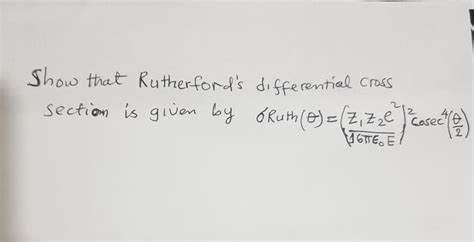 Show that Rutherford's differential cross
section is given by σRuth(θ)=(Z₁Z₂e²/16πε₀E)²Cosec⁴(θ/2)